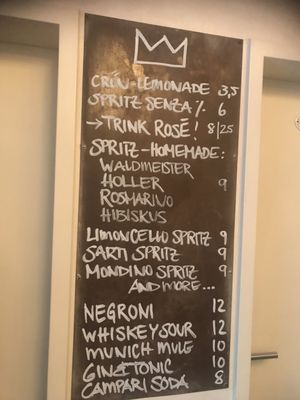 CRÖN-LEMONADE 3,5
SPRITZ SENZA % 6
→TRINK ROSÉ! 8/25
SPRITZ-HOMEMADE:
WALDMEISTER
HOLLER 9
ROSMARINO
HIBISKUS
LIMONCELLO SPRITZ 9
SARTI SPRITZ 9
MONDINO SPRITZ 9
AND MORE...
NEGRONI 12
WHISKEYSOUR 12
MUNICH MULE 10
GIN&TONIC 10
CAMPARI SODA 8